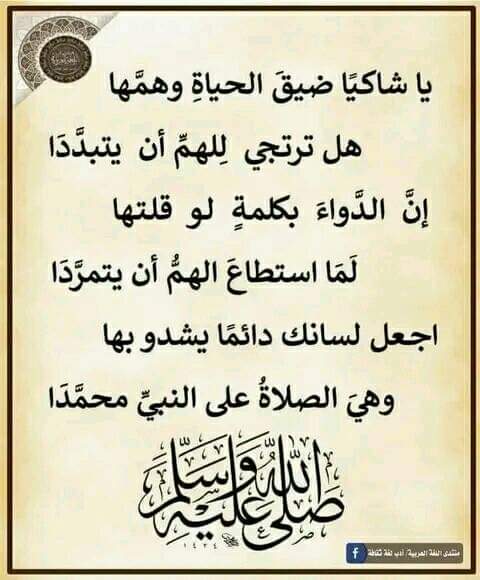 يا شاكيًا ضيقَ الحياةِ وهمَّها
هل ترتجي لِلهمِّ أن يتبدَّدَا
إنَّ الدَّواءَ بكلمةٍ لو قلتها
لَمَا استطاعَ الهمُّ أن يتمرَّدَا
اجعل لسانك دائمًا يشدو بها
وهيَ الصلاةُ على النبيِّ محمَّدَا
صلى الله عليه وسلم
١٤٣٤
منتدى اللغة العربية/ أدب لغة ثقافة